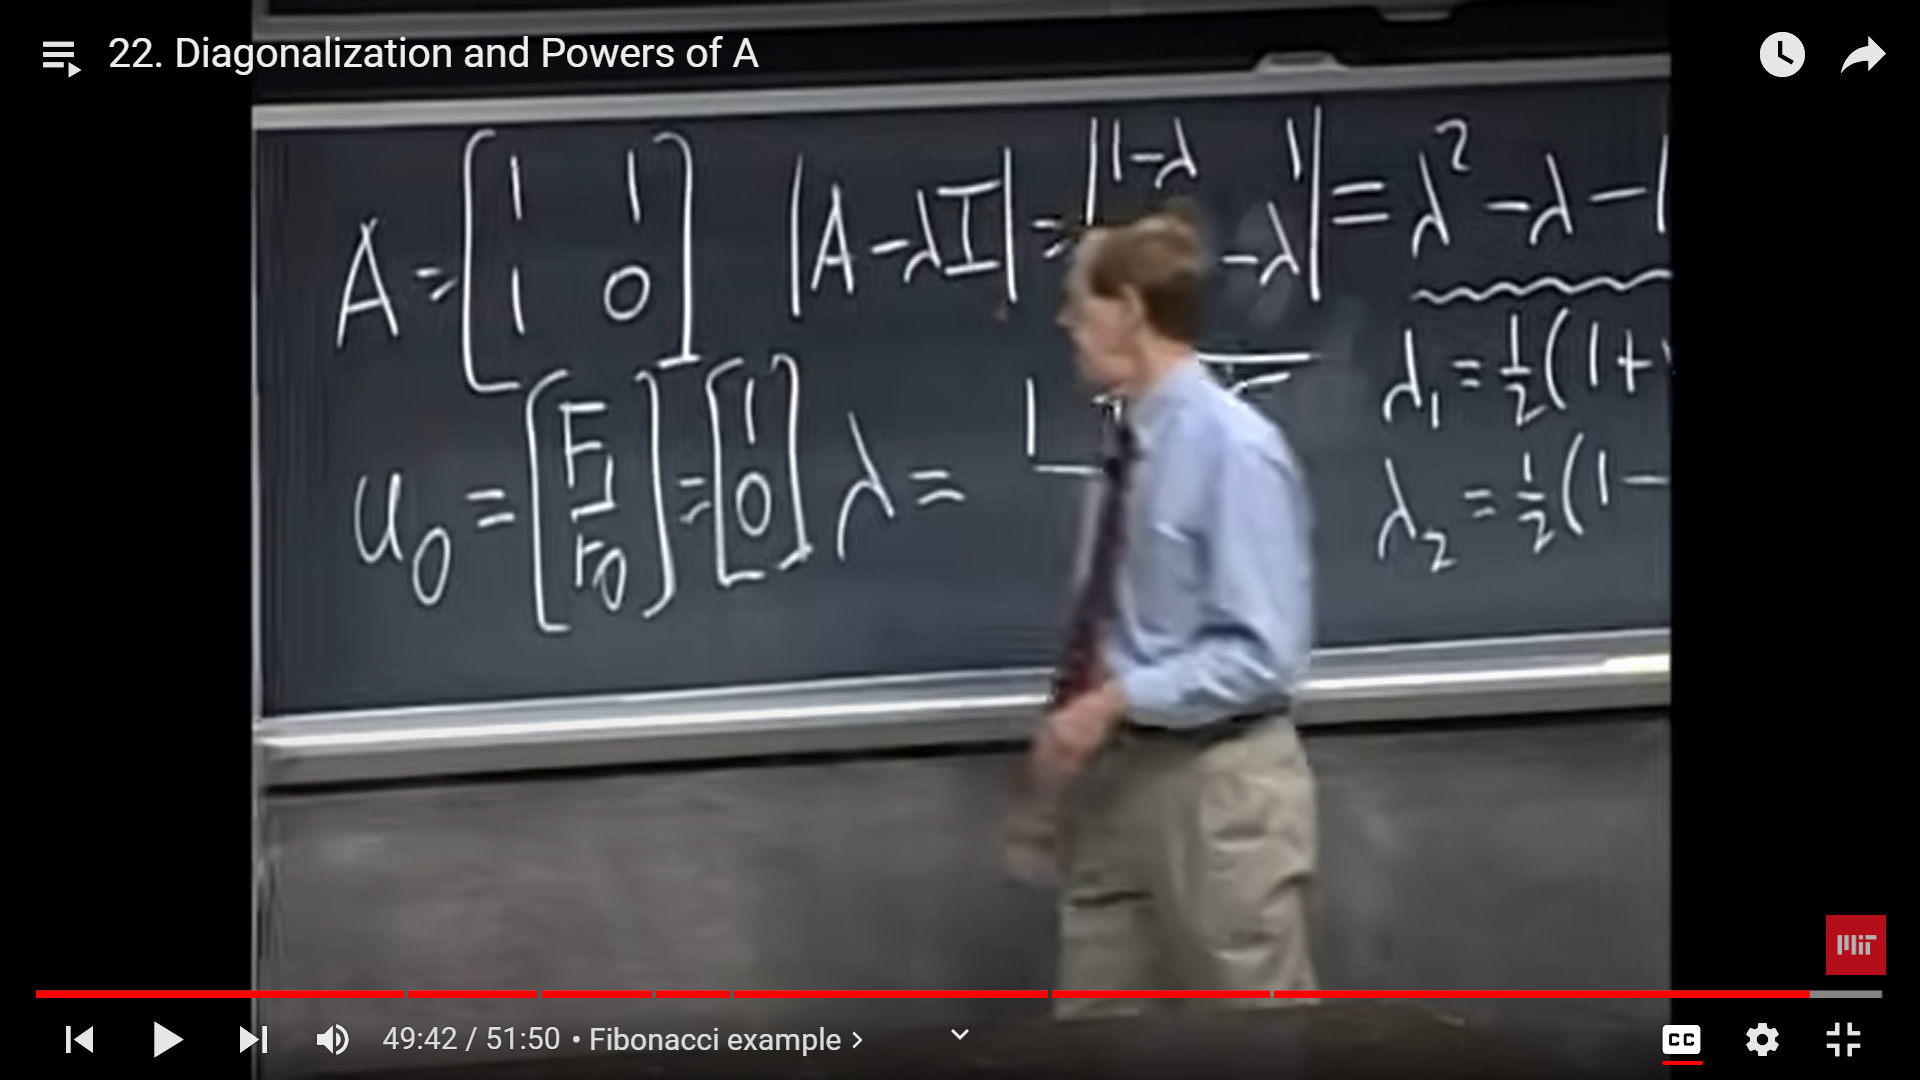 22. Diagonalization and Powers of A
A = [1 1; 1 0] |A - λI| = |1-λ 1; -λ| = λ² - λ - 1
u₀ = [F₁; F₀] = [1; 0] λ =
λ₁ = ½(1+
λ₂ = ½(1-
MIT
49:42 / 51:50 • Fibonacci example >
CC